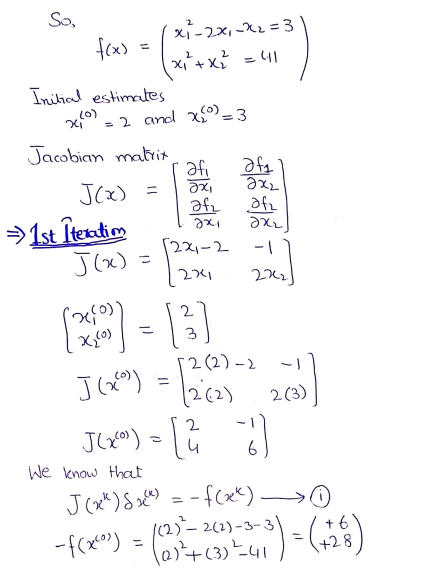 So,
f(x) = ( x₁² - 2x₁ - x₂ = 3
x₁² + x₂² = 41 )
Initial estimates
x₁⁽⁰⁾ = 2 and x₂⁽⁰⁾ = 3
Jacobian matrix
J(x) = [ ∂f₁/∂x₁ ∂f₁/∂x₂
∂f₂/∂x₁ ∂f₂/∂x₂ ]
⇒ 1st Iteration
J(x) = [ 2x₁-2 -1
2x₁ 2x₂ ]
[ x₁⁽⁰⁾
x₂⁽⁰⁾ ] = [ 2
3 ]
J(x⁽⁰⁾) = [ 2(2)-2 -1
2(2) 2(3) ]
J(x⁽⁰⁾) = [ 2 -1
4 6 ]
We know that
J(xᵏ) δx⁽ᵏ⁾ = -f(xᵏ) → ①
-f(x⁽⁰⁾) = ( (2)² - 2(2) - 3 - 3
(2)² + (3)² - 41 ) = ( +6
+28 )